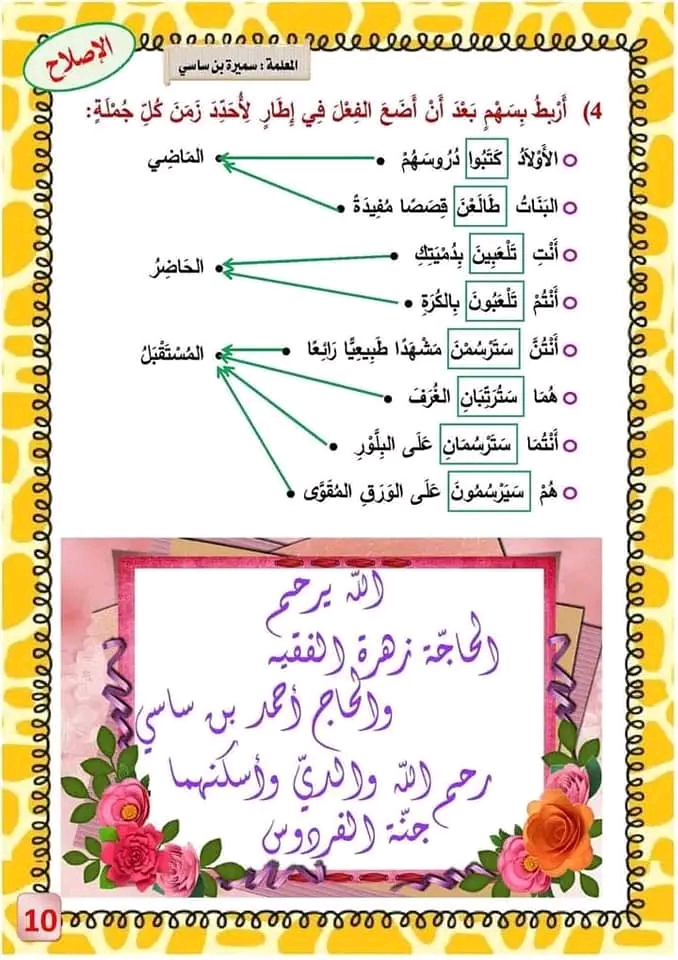 الإصلاح
المعلمة : سميرة بن ساسي
4) أَرْبِطُ بِسَهْمٍ بَعْدَ أَنْ أَضَعَ الفِعْلَ فِي إِطَارٍ لِأُحَدِّدَ زَمَنَ كُلِّ جُمْلَةٍ:
الأَوْلاَدُ كَتَبُوا دُرُوسَهُمْ المَاضِي
البَنَاتُ طَالَعْنَ قِصَصًا مُفِيدَةً
أَنْتِ تَلْعَبِينَ بِدُمْيَتِكِ الحَاضِرُ
أَنْتُمْ تَلْعَبُونَ بِالكُرَةِ
أَنْتُنَّ سَتَرْسُمْنَ مَشْهَدًا طَبِيعِيًّا رَائِعًا المُسْتَقْبَلُ
هُمَا سَتُرَتِّبَانِ الغُرَفَ
أَنْتُمَا سَتَرْسُمَانِ عَلَى البِلَّوْرِ
هُمْ سَيَرْسُمُونَ عَلَى الوَرَقِ المُقَوَّى
الله يرحم
الحاجّة زهرة الفقيه
والحاج أحمد بن ساسي
رحم الله والديّ وأسكنهما
جنّة الفردوس
10